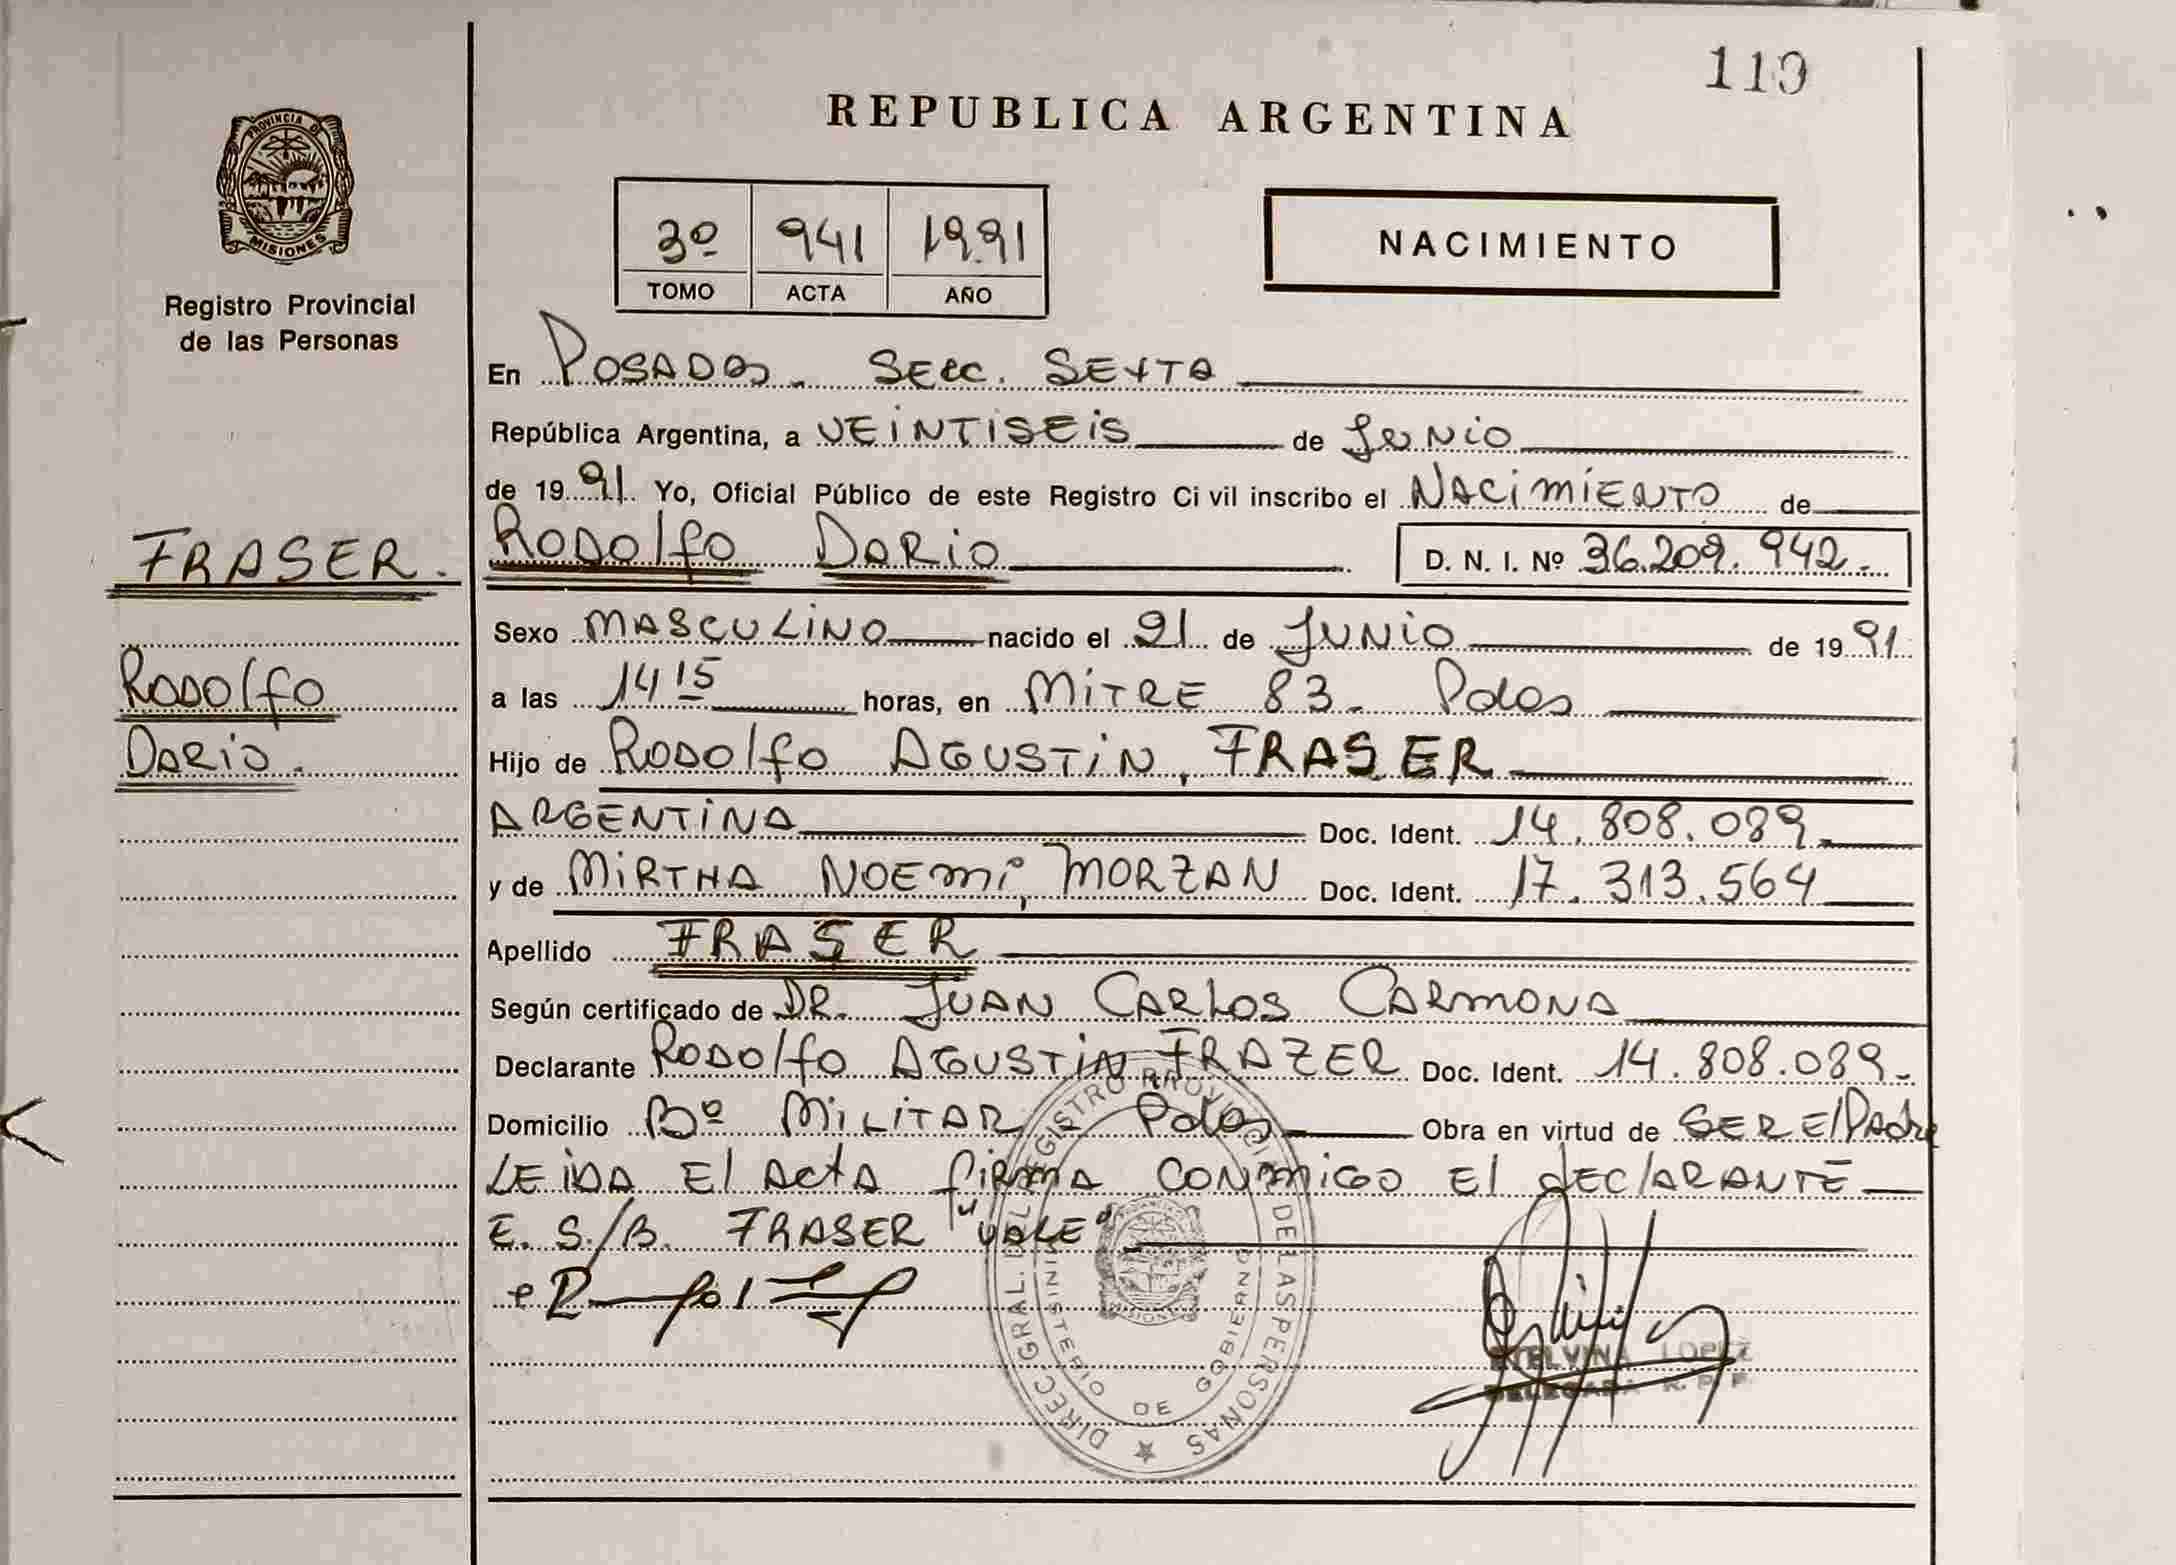 110
REPUBLICA ARGENTINA
PROVINCIA DE
MISIONES
Registro Provincial
de las Personas
3º 941 1991
TOMO ACTA AÑO
NACIMIENTO
En POSADAS. SECC. SEXTA
República Argentina, a VEINTISEIS de JUNIO
de 1991 Yo, Oficial Público de este Registro Civil inscribo el NACIMIENTO de
FRASER.
RODOLFO DARIO D. N. I. Nº 36.209.942.-
Sexo MASCULINO nacido el 21 de JUNIO de 1991
RODOLFO
a las 14 15 horas, en MITRE 83. Pdas
DARIO.
Hijo de RODOLFO AGUSTIN, FRASER
ARGENTINA Doc. Ident. 14.808.089.
y de MIRTHA NOEMI, MORZAN Doc. Ident. 17.313.564
Apellido FRASER
Según certificado de DR. JUAN CARLOS CARMONA
Declarante RODOLFO AGUSTIN FRAZER Doc. Ident. 14.808.089.-
Domicilio Bº MILITAR Pdas Obra en virtud de SER El Padre
LEIDA El ActA fIRMA CONMIGO El dEClARANTE
E. S/B. FRASER "VALE"
DIREC. GRAL. DEL REGISTRO PROVINCIAL DE LAS PERSONAS
MINISTERIO DE GOBIERNO
MISIONES
ETELVINA LOPEZ
DELEGADA R. P. P.